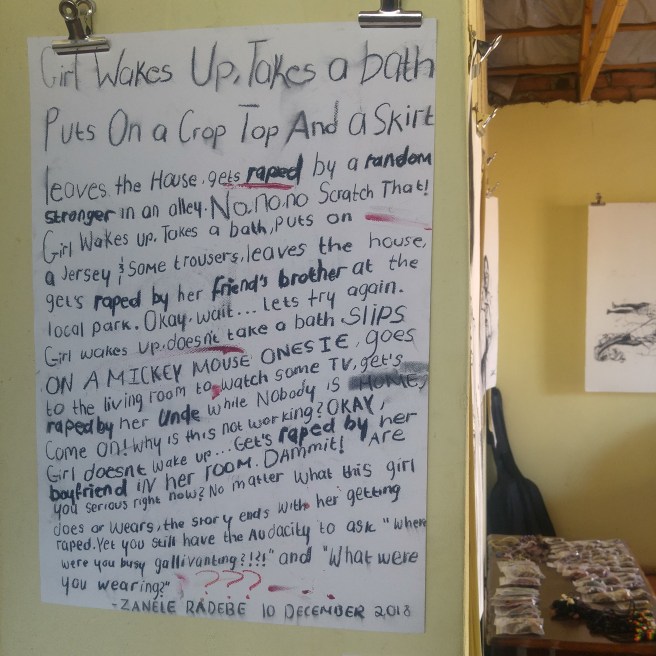 Girl Wakes Up, Takes a bath
Puts On a Crop Top And a Skirt
leaves the House, gets raped by a random
stranger in an alley. No, no, no Scratch That!
Girl Wakes up, Takes a bath, puts on
a Jersey & Some trousers, leaves the house,
get's raped by her friend's brother at the
local park. Okay. wait... lets try again.
Girl wakes up, doesn't take a bath. SLIPS
ON A MICKEY MOUSE ONESIE, goes
to the living room to watch some TV, get's
raped by her Uncle while Nobody is HOME,
Come On! Why is this not working? OKAY,
Girl doesnt wake up... Get's raped by her
boyfriend IN her room. DAmmit! Are
you serious right now? No matter what this girl
does or wears, the story ends with her getting
raped. Yet you still have the Audacity to ask "where
were you busy gallivanting?!?!" and "What were
you wearing?" ???
- ZANELE RADEBE 10 DECEMBER 2018